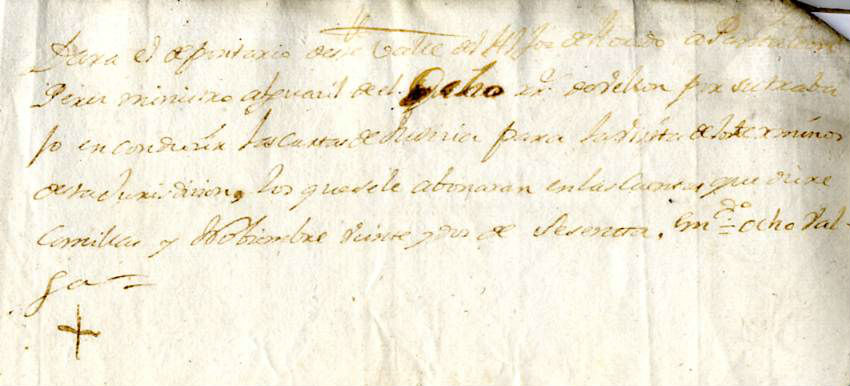 Dara el depositario deste Valle de Alfoz de lloredo a
Perez ministro alguacil de el ocho rr.s de vellon por su traba
jo en conducir las Cartas de Justicia para la visita de los terminos
de la Jurisdicion, los que se le abonaran en las Cuentas que diere
Comillas y Nobiembre veinte y dos de Sesenta. Em.do = ocho Val-
ga =